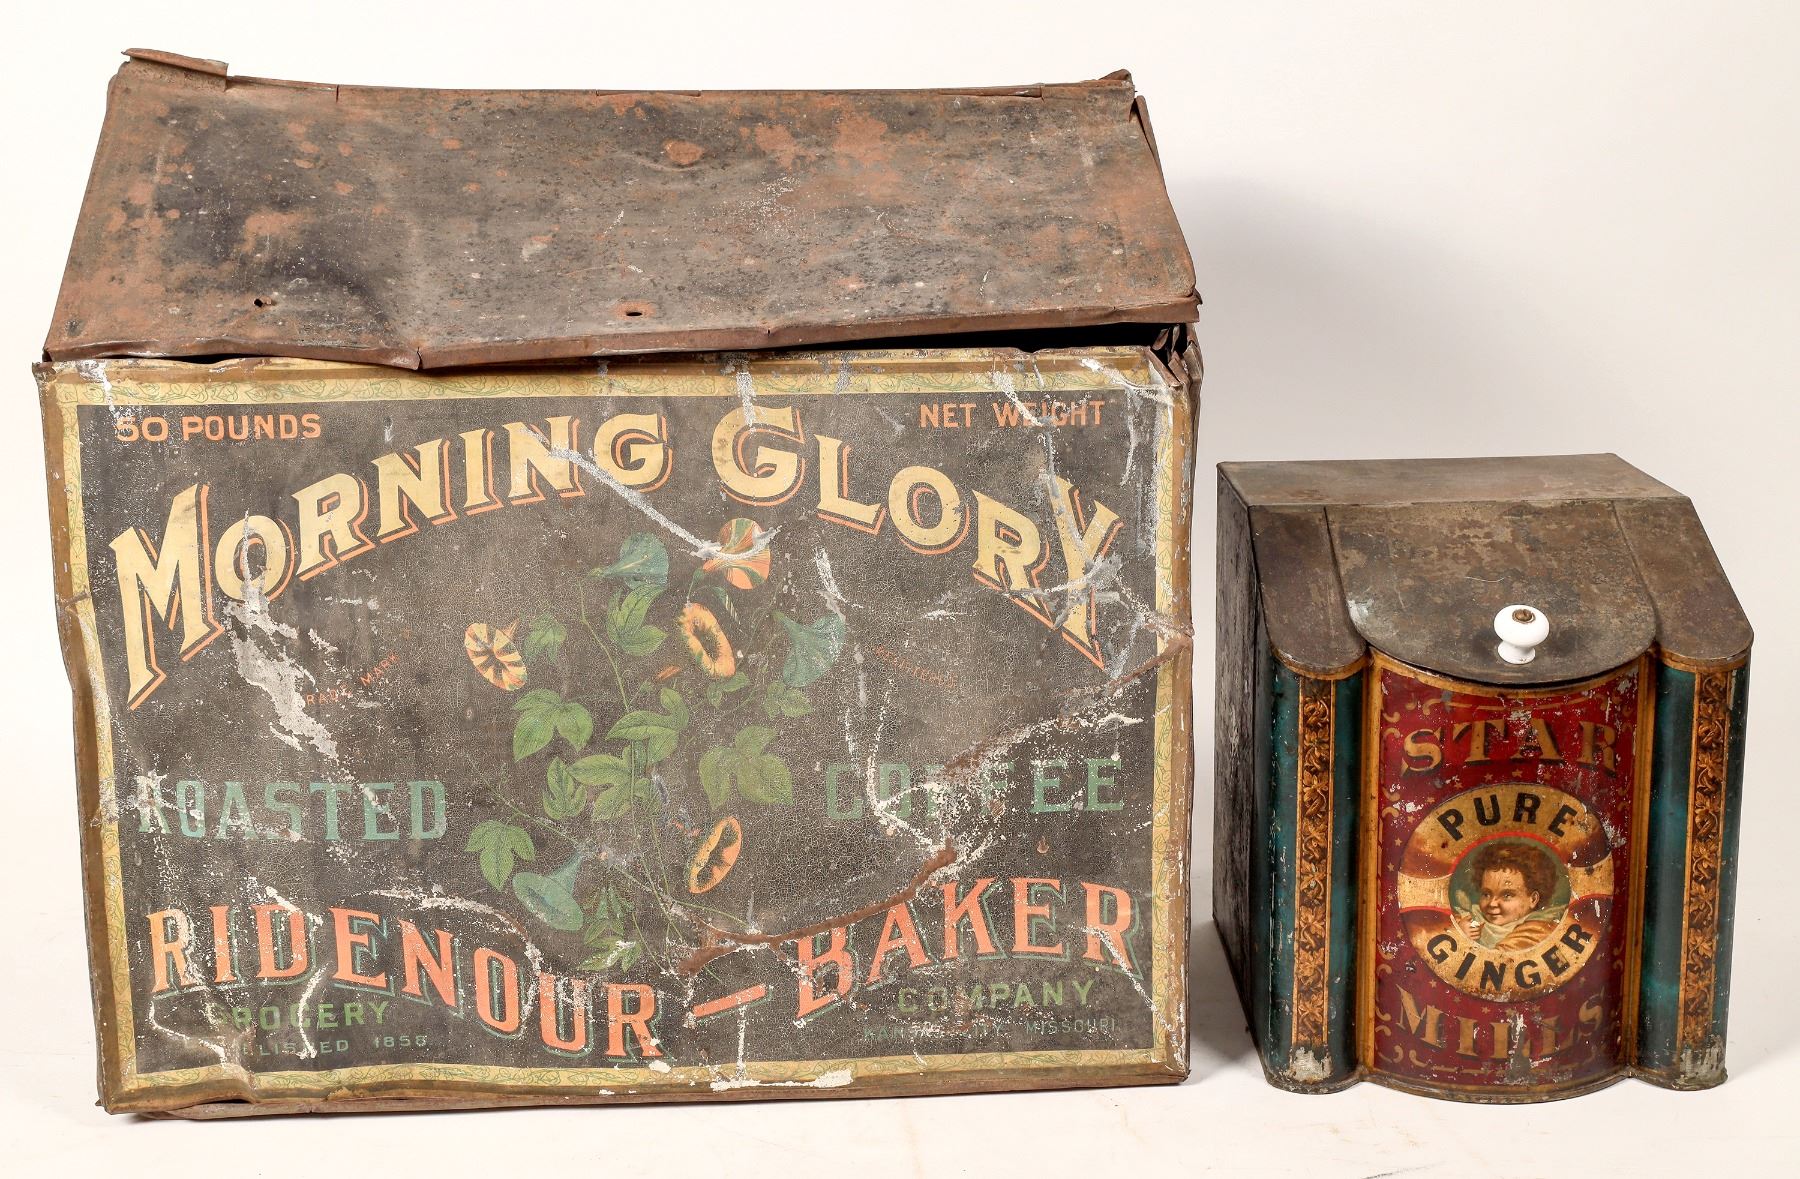 50 POUNDS NET WEIGHT
MORNING GLORY
TRADE MARK REGISTERED
ROASTED COFFEE
RIDENOUR-BAKER
GROCERY COMPANY
1858 KANSAS CITY MISSOURI
STAR
PURE
GINGER
MILLS